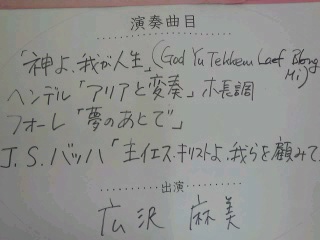 演奏曲目
「神よ、我が人生」(God Yu Tekkem Laef Blong
Mi)
ヘンデル「アリアと変奏」ホ長調
フォーレ「夢のあとで」
J.S.バッハ「主イエス・キリストよ、我らを顧みて
出演
広沢 麻美